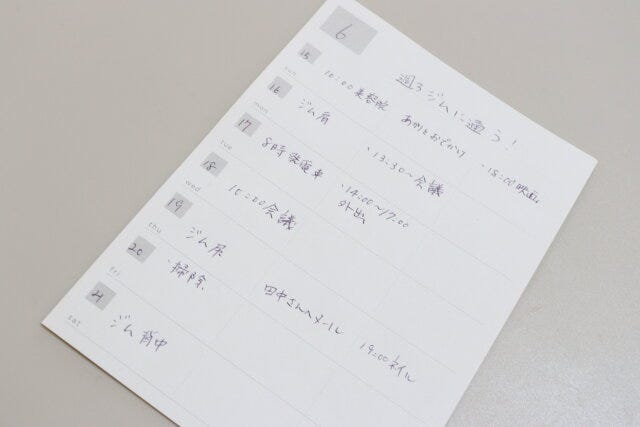 6
週3ジムに通う!
15 sun 10:00美容院 あかりとおでかけ ・18:00映画
16 mon ジム肩 ・13:30〜会議
17 tue 8時 発電車 ・14:00〜17:00
外出
18 wed 15:00会議
19 thu ジム尻
20 fri ・掃除 田中さんへメール 19:00ネイル
21 sat ジム背中